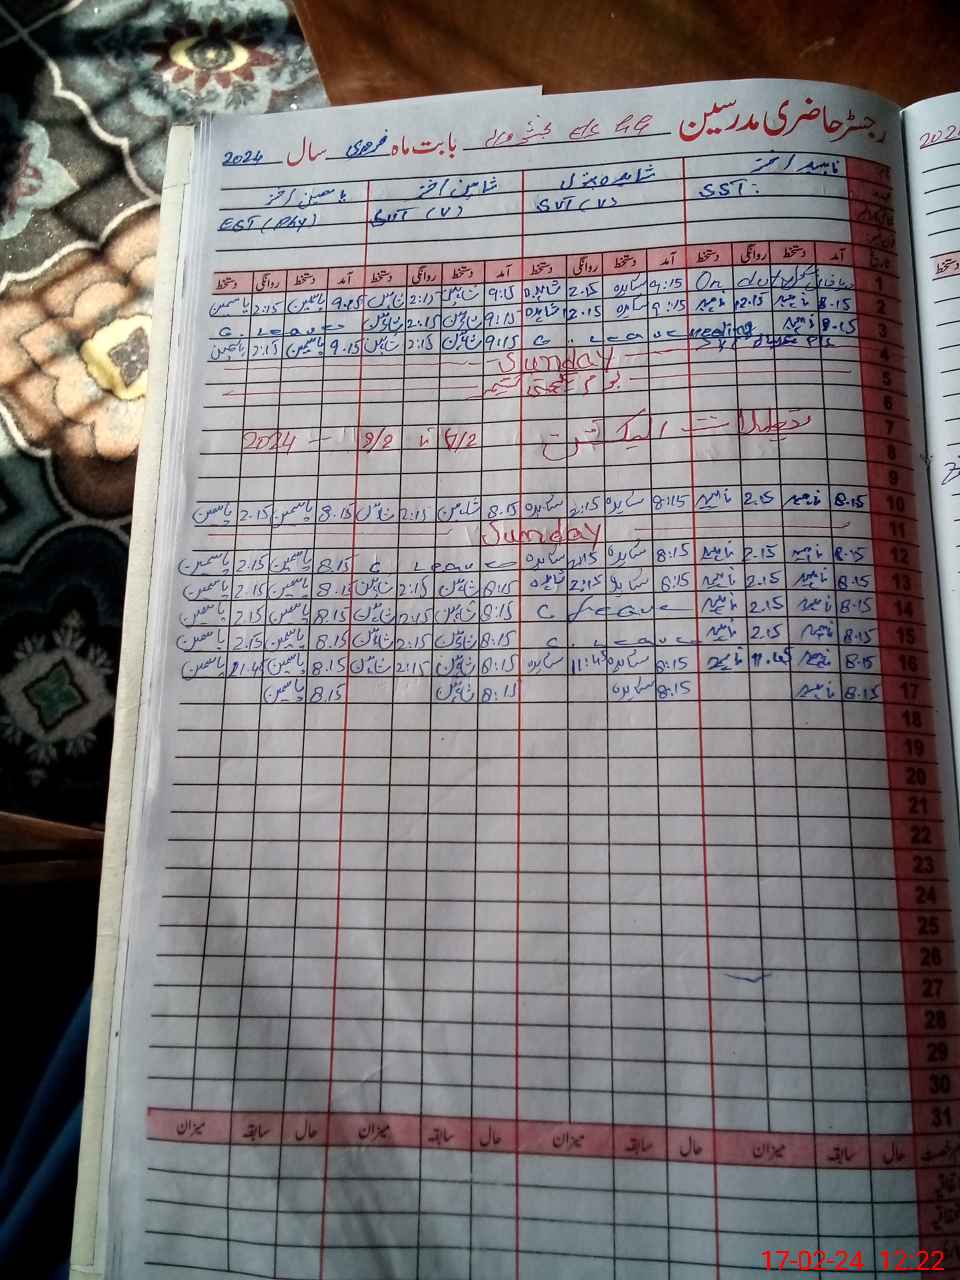 رجسٹر حاضری مدرسین بابت ماہ فروری سال 2024
نام شاہدہ شاہین اختر یاسمین اختر
SST: SVT (V) SVT (V) EST (PHY)
تاریخ آمد دستخط روانگی دستخط آمد دستخط روانگی دستخط آمد دستخط روانگی دستخط آمد دستخط روانگی دستخط
1 On duty 9:15 شاہدہ 2.15 شاہدہ 9:15 شاہین 2:15 شاہین 9.15 یاسمین 2:15 یاسمین
2 8.15 ناہید 12.15 ناہید 9:15 شاہدہ 2.15 شاہدہ 9:15 شاہین 2.15 شاہین C. Leave
3 8.15 ناہید meeting C. Leave 9:15 شاہین 2:15 شاہین 9.15 یاسمین 2:15 یاسمین
4 Sunday
5 یوم یکجہتی کشمیر
6
7 تعطیلات الیکشن 6/2 تا 9/2 - 2024
8
9
10 8.15 ناہید 2.15 ناہید 8:15 شاہدہ 2:15 شاہدہ 8.15 شاہین 2:15 شاہین 8.15 یاسمین 2.15 یاسمین
11 Sunday
12 8.15 ناہید 2.15 ناہید 8:15 شاہدہ 2:15 شاہدہ C Leave 8.15 یاسمین 2.15 یاسمین
13 8.15 ناہید 2.15 ناہید 8:15 شاہدہ 2:15 شاہدہ 8:15 شاہین 2:15 شاہین 8.15 یاسمین 2.15 یاسمین
14 8.15 ناہید 2.15 ناہید C Leave 8:15 شاہین 2:15 شاہین 8.15 یاسمین 2.15 یاسمین
15 8.15 ناہید 2.15 ناہید C. Leave 8:15 شاہین 2:15 شاہین 8.15 یاسمین 2.15 یاسمین
16 8.15 ناہید 11.45 ناہید 8:15 شاہدہ 11:45 شاہدہ 8:15 شاہین 2:15 شاہین 8.15 یاسمین 11.45 یاسمین
17 8.15 ناہید 8.15 شاہدہ 8:15 شاہین 8.15 یاسمین
18
19
20
21
22
23
24
25
26
27
28
29
30
31
حال سابقہ میزان حال سابقہ میزان حال سابقہ میزان حال سابقہ میزان
17-02-24 12:22